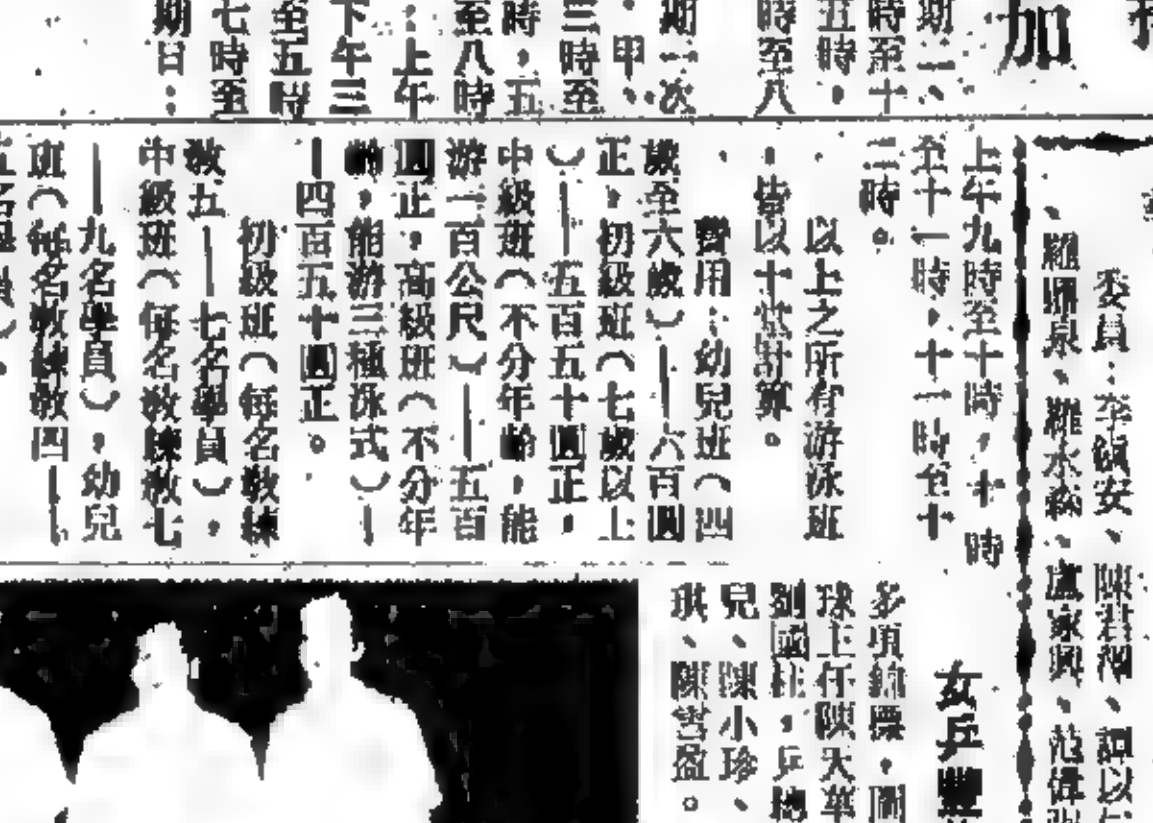 加
期二、
時至十
五時，
時至八
期二次
、甲、
三時至
時，五
至八時
：上午
下午三
至五時
七時至
期日：
委員：李 安、陳君 、譚以
、羅鼎泉、羅水 、盧家興、范偉
上午九時至十時，十時
至十一時，十一時至十
二時。
以上之所有游泳班
，皆以十堂計算。
費用：幼兒班（四
歲至六歲）——六百圓
正，初級班（七歲以上
）——五百五十圓正，
中級班（不分年齡，能
游一百公尺）——五百
圓正，高級班（不分年
齡，能游三種泳式）—
—四百五十圓正。
初級班（每名教練
教五——七名學員），
中級班（每名教練教七
——九名學員），幼兒
班（每名教練教四——
五名學員）。
女乒豐
多項錦標，團
球主任陳大華
劉國柱，乒總
兒、陳小珍、
琪、陳雪盈。